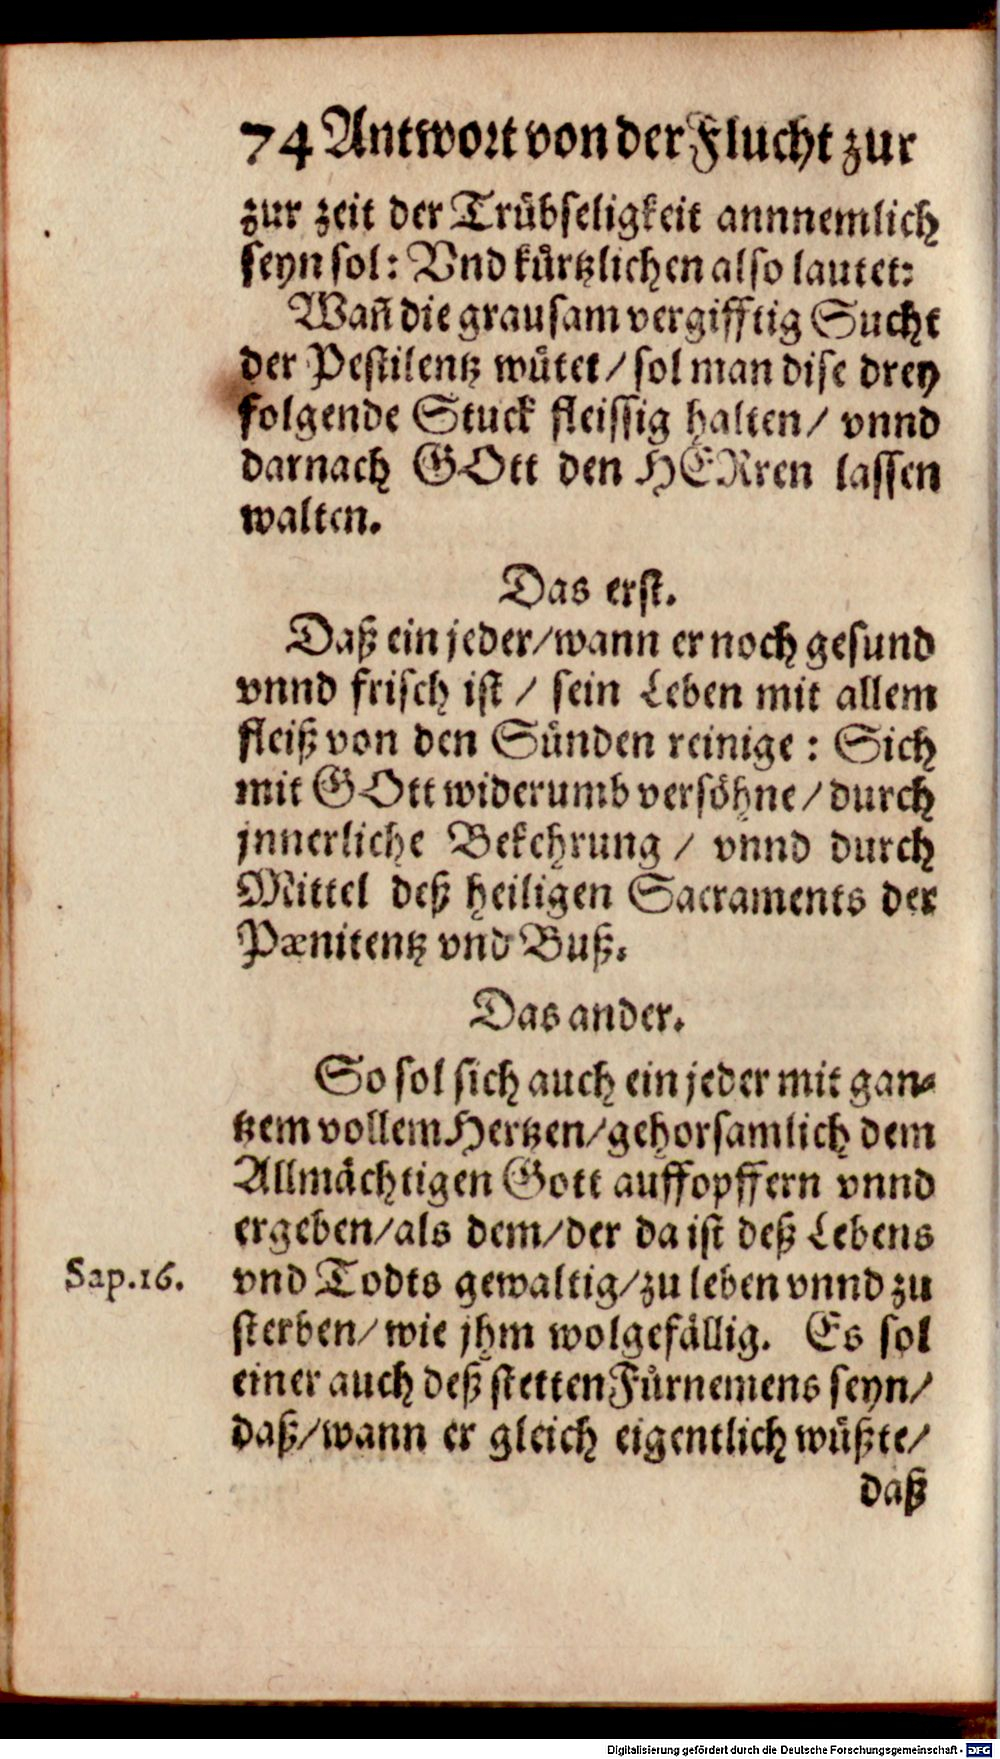 74 Antwort von der Flucht zur
zur zeit der Trübseligkeit annnemlich
seyn sol: Vnd kürtzlichen also lautet:
Wañ die grausam vergifftig Sucht
der Pestilentz wütet / sol man dise drey
folgende Stuck fleissig halten / vnnd
darnach GOtt den HERren lassen
walten.
Das erst.
Daß ein jeder / wann er noch gesund
vnnd frisch ist / sein Leben mit allem
fleiß von den Sünden reinige : Sich
mit GOtt widerumb versöhne / durch
jnnerliche Bekehrung / vnnd durch
Mittel deß heiligen Sacraments der
Pænitentz vnd Buß.
Das ander.
So sol sich auch ein jeder mit gan-
tzem vollem Hertzen / gehorsamlich dem
Allmächtigen Gott auffopffern vnnd
ergeben / als dem / der da ist deß Lebens
Sap. 16. vnd Todts gewaltig / zu leben vnnd zu
sterben / wie jhm wolgefällig. Es sol
einer auch deß stetten Fürnemens seyn /
daß / wann er gleich eigentlich wüßte /
daß
Digitalisierung gefördert durch die Deutsche Forschungsgemeinschaft - DFG